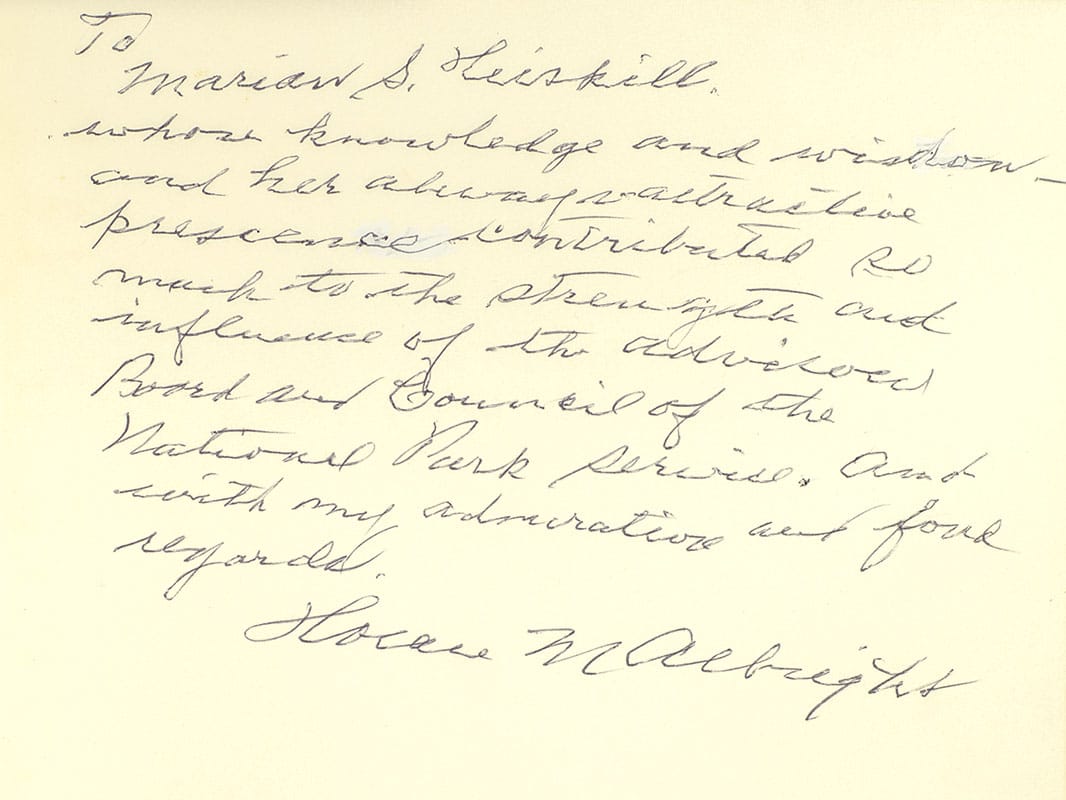 To
Marian S. Heiskill.
whose knowledge and wisdom –
and her always attractive
prescence contributed so
much to the strength and
influence of the advisory
Board and Council of the
National Park Service. And
with my admiration and fond
regards.
Horace M Albright